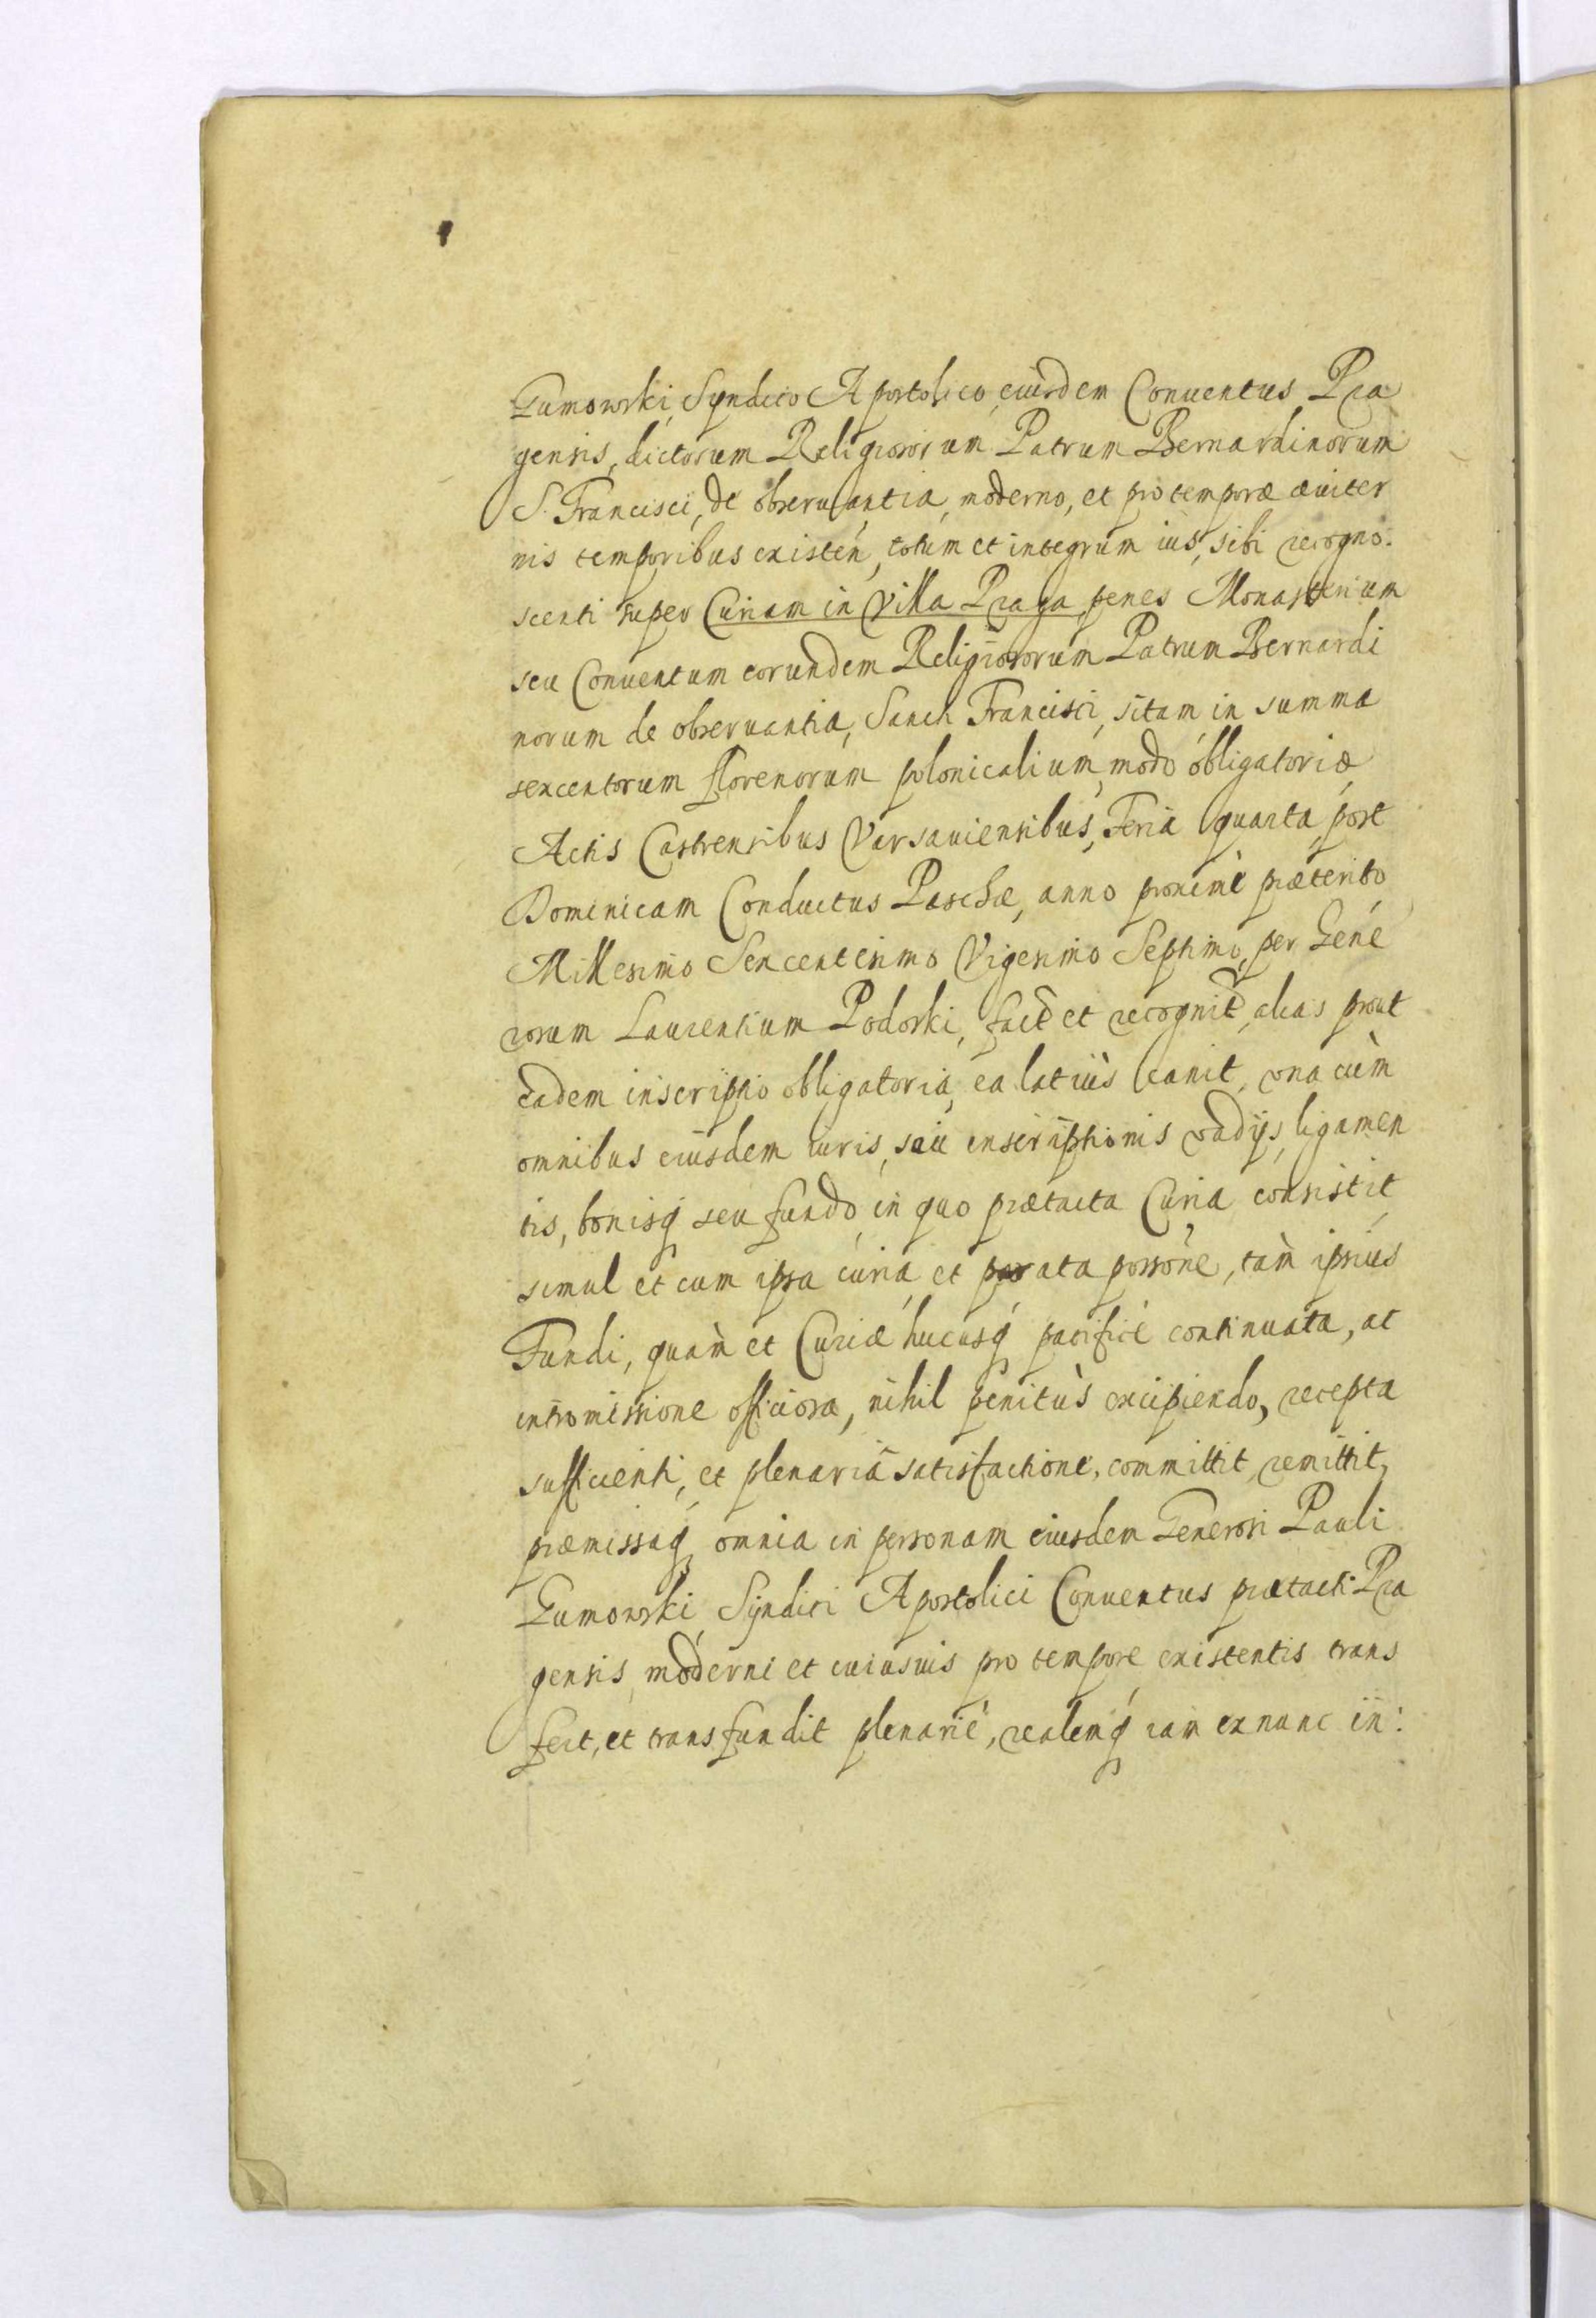 Gumowski, Syndico Apostolico, eiusdem Conuentus Pra
gensis, dictorum Religiosorum Patrum Bernardinorum
S. Francisci, de obseruantia, moderno, et pro temporæ æuiter
nis temporibus existen, totum et integrum ius, sibi recogno:
scenti super Curiam in Villa Praga penes Monasterium
seu Conuentum eorundem Religiosorum Patrum Bernardi
norum de obseruantia, Sancti Francisci, sitam in summa
sexcentorum florenorum polonicalium, modo obligatoriæ
Actis Castrensibus Varsauiensibus, Feria quarta post
Dominicam Conductus Paschæ, anno proximè præterito
Millesimo Sexcentesimo Vigesimo Septimo, per Gene
rosum Laurentium Podoski, fact et recognit, alias prout
eadem inscriptio obligatoria, ea latiùs canit, vna cùm
omnibus eiusdem iuris, seu inscriptionis vadijs, ligamen
tis, bonisq seu fundo, in quo prætacta Curia consistit
simul et cum ipsa curia, et parata possone, tàm ipsius
Fundi, quàm et Curiæ hucusq pacificè continuata, ac
intromissione officiosa, nihil penitùs excipiendo, recepta
sufficienti, et plenariâ satisfactione, committit, remittit,
præmissaq omnia in personam eiusdem Generosi Pauli
Gumowski, Syndici Apostolici Conuentus prætacti Pra
gensis, moderni et cuiusuis pro tempore existentis trans
fert, et transfundit plenariè, realemq iam exnunc in: